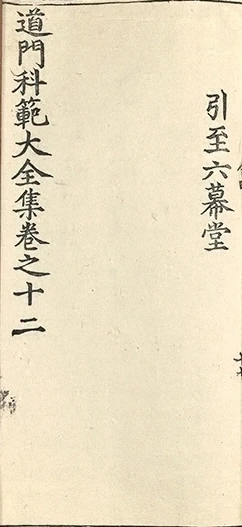 引至六幕堂
道門科範大全集卷之十二